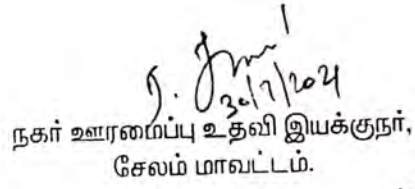 30/7/2021
நகர் ஊரமைப்பு உதவி இயக்குநர்,
சேலம் மாவட்டம்.